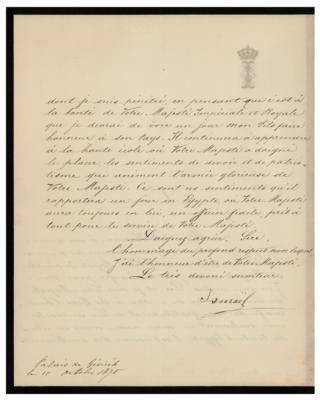 dont je suis pénétré, en pensant que c'est à
la bonté de Votre Majesté Impériale et Royale
que je devrai de voir un jour mon fils faire
honneur à son pays. Il continuera à apprendre
à la haute école où Votre Majesté a daigné
le placer les sentiments de devoir et de patrio-
tisme que animent l'armée glorieuse de
Votre Majesté. Ce sont ses sentiments qu'il
rapportera un jour en Egypte, où Votre Majesté
aura toujours en lui, un officier fidèle prêt à
tout pour le service de Votre Majesté.
Daignez agréer, Sire,
l'hommage du profond respect avec lequel
j'ai l'honneur d'être de Votre Majesté
Le très dévoué serviteur
Ismaïl
Palais de
le 10 Octobre 1875